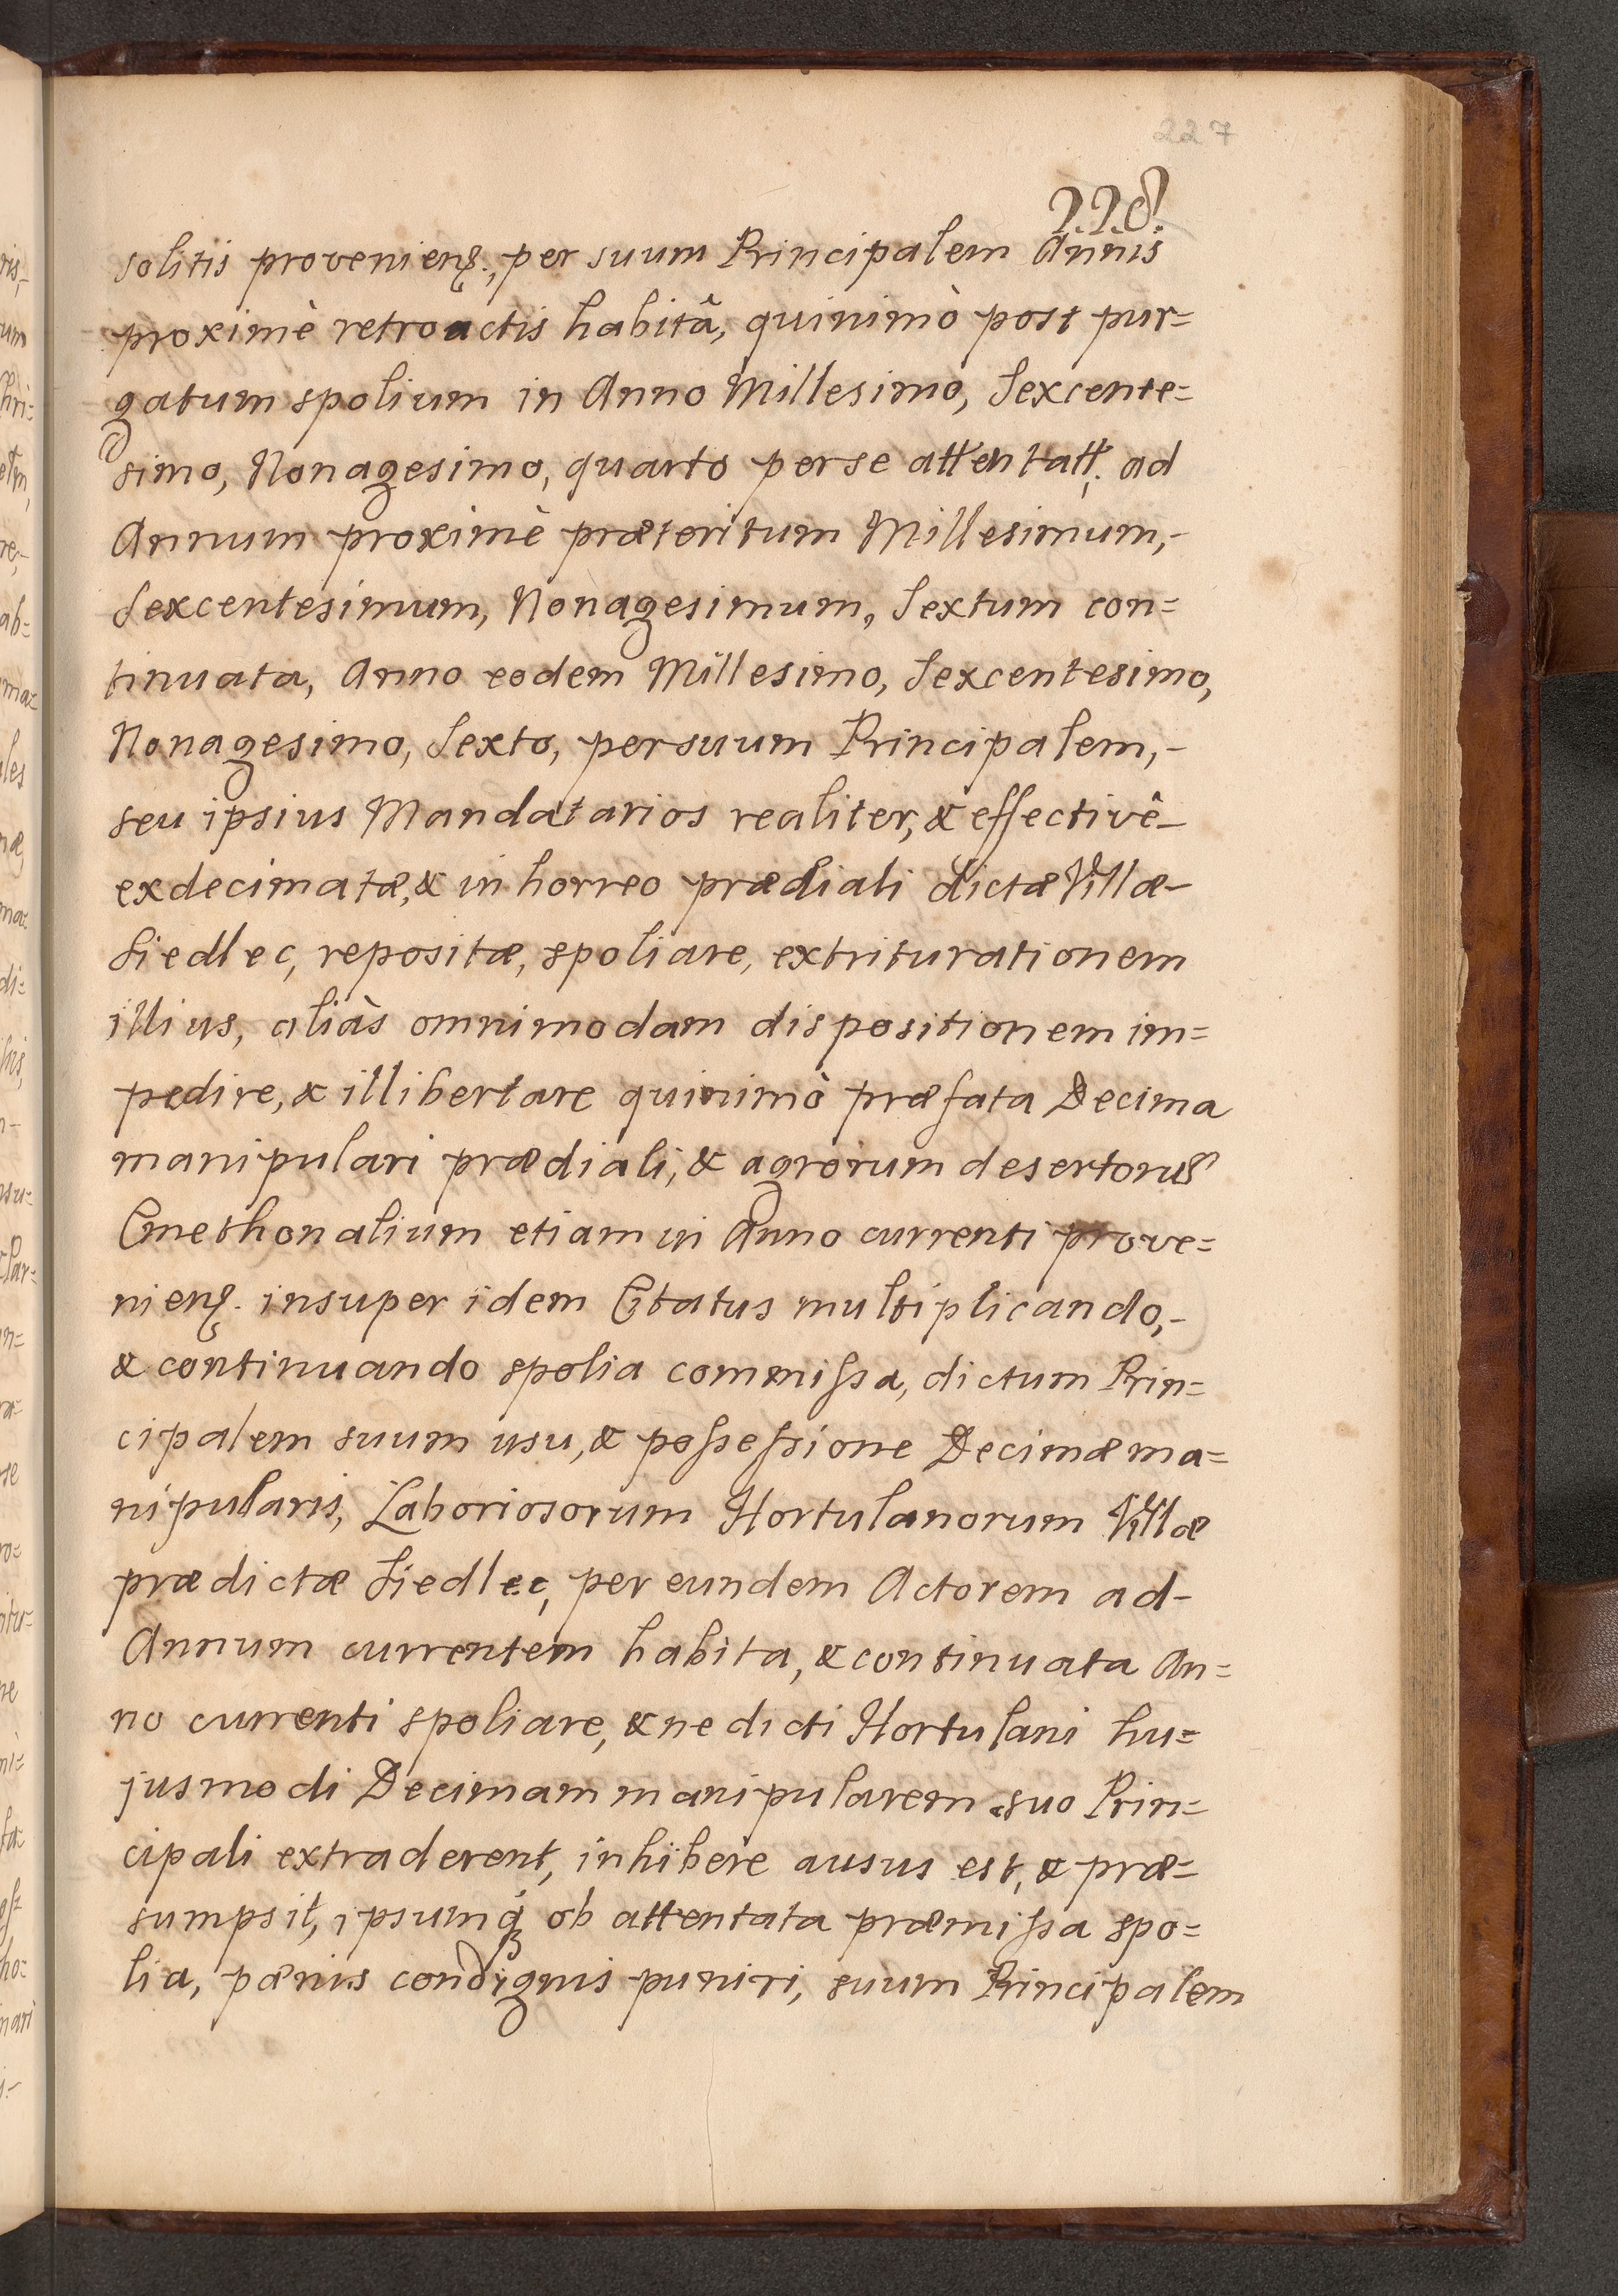 227
228.
solitis provenienꝭ., per suum Principalem Annis
proximè retroactis habitâ, quinimò post pur=
gatum spolium in Anno Millesimo, Sexcente=
simo, Nonagesimo, quarto per se attentatt. ad
Annum proximè præteritum Millesimum,-
Sexcentesimum, Nonagesimum, Sextum con=
tinuata, Anno eodem Millesimo, Sexcentesimo,
Nonagesimo, Sexto, per suum Principalem,-
seu ipsius Mandatarios realiter, & effectivê-
exdecimatæ, & in horreo prædiali dictæ Villæ-
Siedlec, repositæ, spoliare, extriturationem
illius, aliàs omnimodam dispositionem im=
pedire, & illibertare quinimò præfata Decima
manipulari prædiali, & agrorum desertorũ
Cmethonalium etiam in Anno currenti prove=
nienꝭ. insuper idem Citatus multiplicando,-
& continuando spolia commissa, dictum Prin=
cipalem suum usu, & possessione Decimæ ma=
nipularis, Laboriosorum Hortulanorum Villæ
prædictæ Siedlec, per eundem Actorem ad-
Annum currentem habita, & continuata An=
no currenti spoliare, & ne dicti Hortulani hu=
jusmodi Decimam manipularem suo Prin=
cipali extraderent, inhibere ausus est, & præ=
sumpsit, ipsumq́ꝫ ob attentata præmissa spo=
lia, pænis condignis puniri, suum Principalem